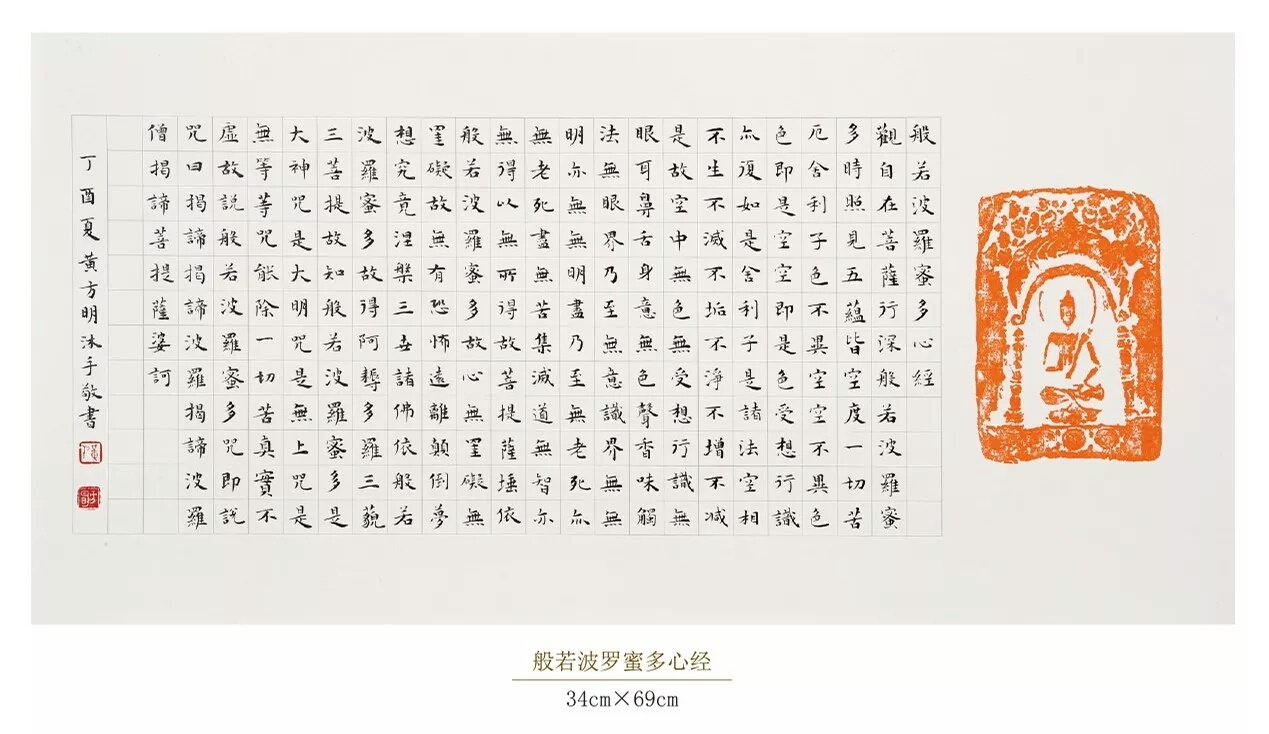 般若波羅蜜多心經
觀自在菩薩行深般若波羅蜜
多時照見五蘊皆空度一切苦
厄舍利子色不異空空不異色
色即是空空即是色受想行識
亦復如是舍利子是諸法空相
不生不滅不垢不淨不增不減
是故空中無色無受想行識無
眼耳鼻舌身意無色聲香味觸
法無眼界乃至無意識界無無
明亦無無明盡乃至無老死亦
無老死盡無苦集滅道無智亦
無得以無所得故菩提薩埵依
般若波羅蜜多故心無罣礙無
罣礙故無有恐怖遠離顛倒夢
想究竟涅槃三世諸佛依般若
波羅蜜多故得阿耨多羅三藐
三菩提故知般若波羅蜜多是
大神咒是大明咒是無上咒是
無等等咒能除一切苦真實不
虛故說般若波羅蜜多咒即說
咒曰揭諦揭諦波羅揭諦波羅
僧揭諦菩提薩婆訶
丁酉夏黃方明沐手敬書
般若波罗蜜多心经
34cm×69cm